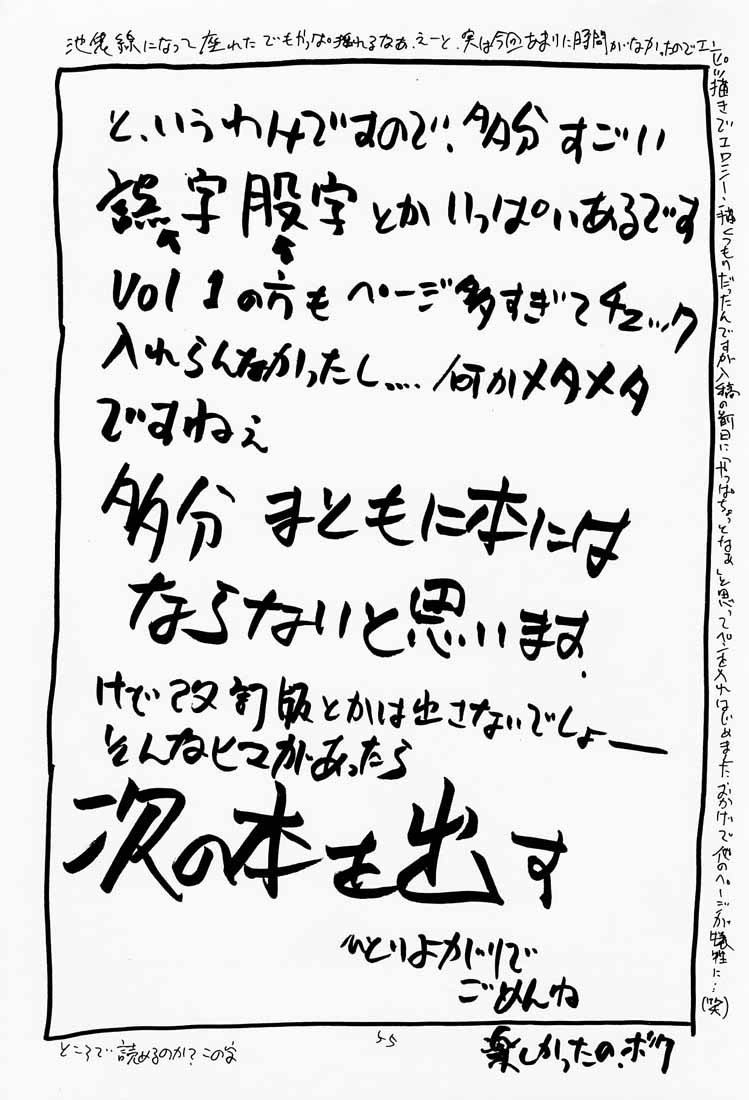 池袋線になって座れた でもやっぱ揺れるなぁ、えーと、実は今回あまりに時間がなかったのでエンピツ描きでエロシーン描くつもりだったんですが入稿の前日に「やっぱちょっとなぁ」と思ってペンを入れはじめました。おかげで他のページが犠牲に…(笑)
と、いうわけですので、多分すごい
誤字股字とかいっぱいあるです
vol 1の方もページ多すぎてチェック
入れらんなかったし…. 何かメタメタ
ですねぇ
多分 まともに本には
ならないと思います.
けど改訂版とかは出さないでしょー
そんなヒマがあったら
次の本を出す
ひとりよがりで
ごめんね
楽しかったの、ボク
ところで読めるのか?この字
55